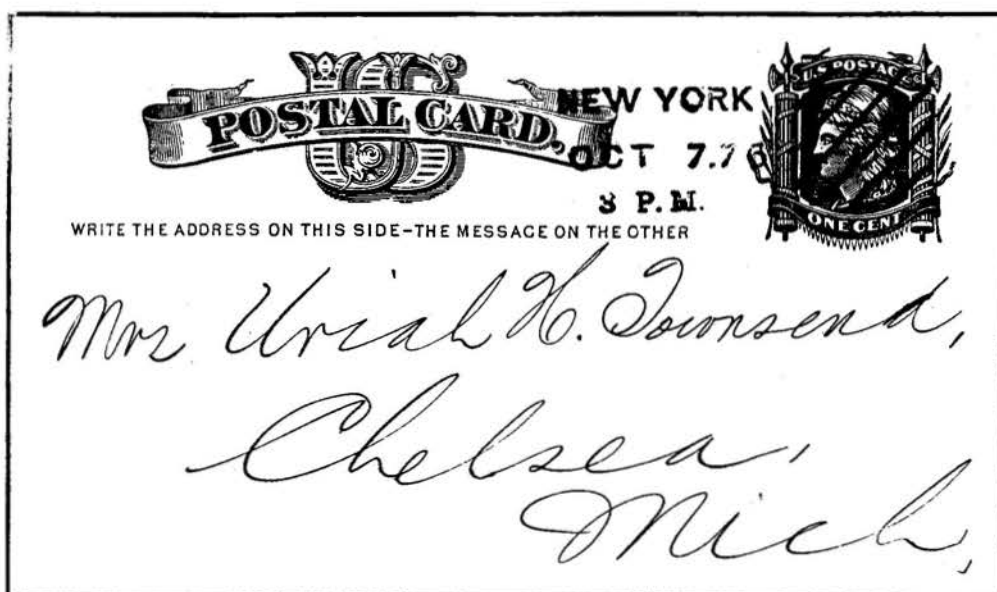 US
POSTAL CARD.
NEW YORK
OCT 7.76
8 P.M.
U.S. POSTAGE
ONE CENT
WRITE THE ADDRESS ON THIS SIDE-THE MESSAGE ON THE OTHER
Mrs Uriah H. Townsend,
Chelsea,
Mich,